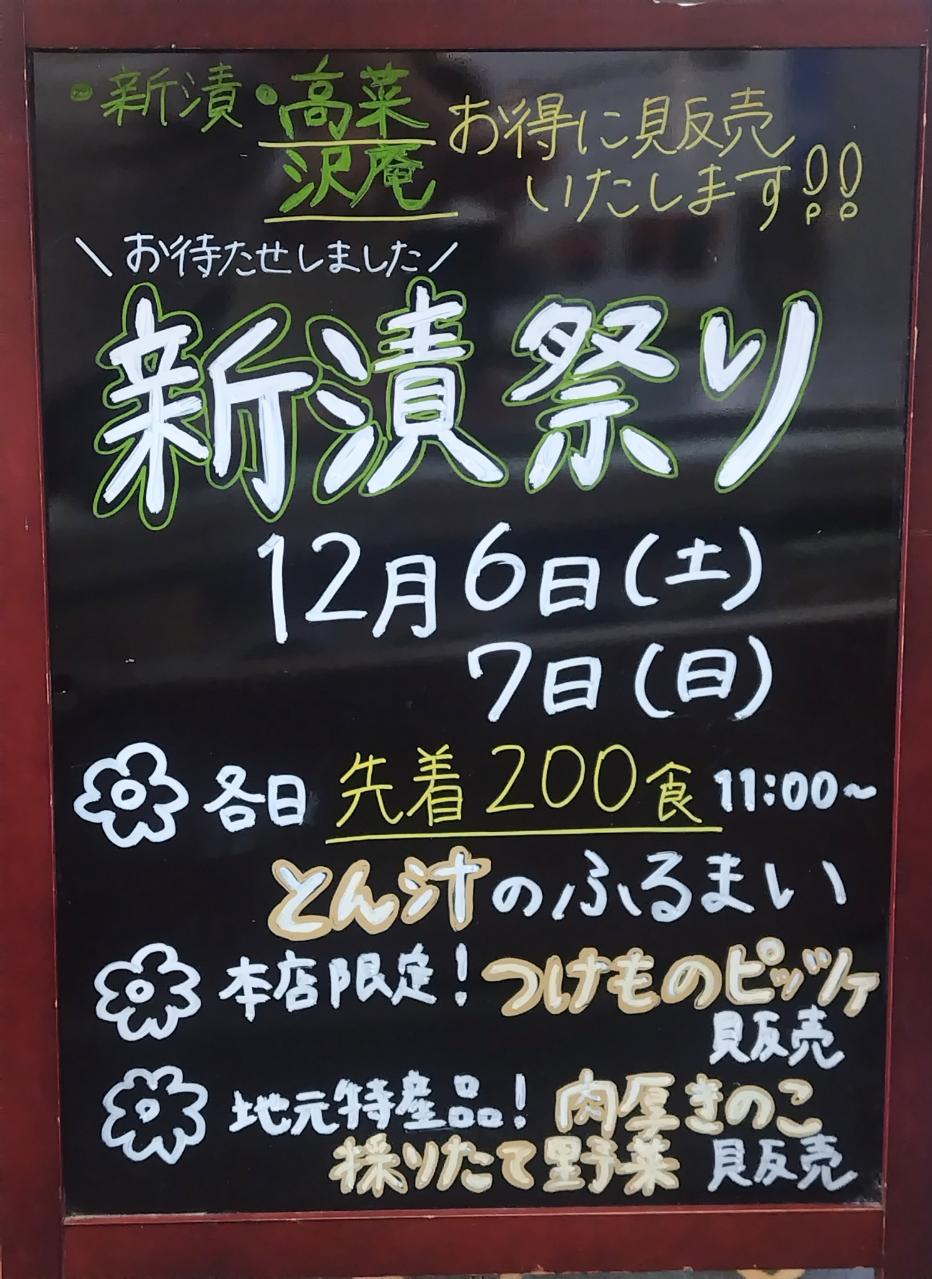 ・新漬・高菜
沢庵
お得に販売
いたします!!
\お待たせしました/
新漬祭り
12月6日(土)
7日(日)
各日 先着200食 11:00~
とん汁のふるまい
本店限定!つけものピッツァ
販売
地元特産品!肉厚きのこ
採りたて野菜 販売